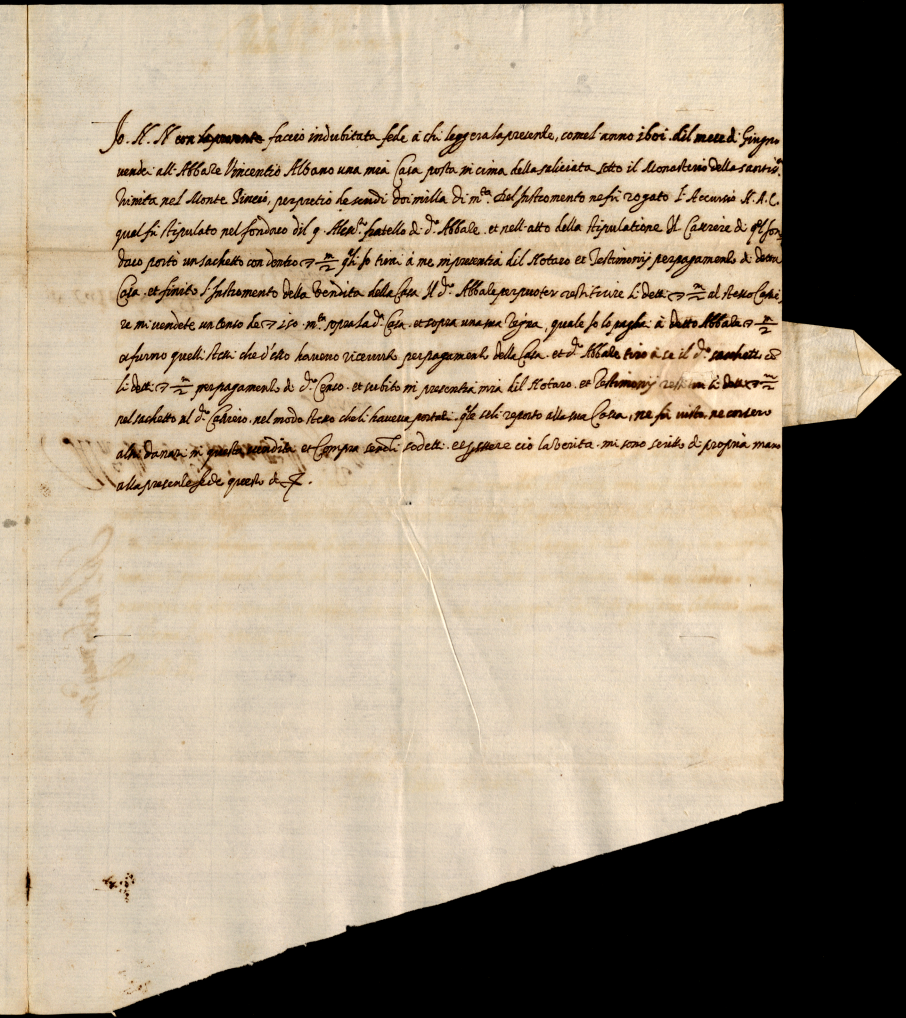 Jo. N. N con la presente faccio indubitata fede à chi leggera la presente, come l'anno 1601. del mese di Giugno
vendei all'Abbate Vincentio Albano una mia Casa posta in cima della saliciata sotto il Monasterio della santiss.ma
Trinita nel Monte Pincio, per pretio de scudi doi milla di m.ta del Instromento ne fu rogato l'Accursio N. A. C.
qual fu stipulato nel fondaco dil q. Aless.o fratello di d.o Abbate. et nell'atto della stipulatione Il Cassiere di q.l fon
daco portò un sachetto con dentro ∇ m/2 q.li Jo tirai à me in presentia del Notaro et Testimonij per pagamento di detta
Casa. et finito l'Instromento della Vendita della Casa Il d.o Abbate per puoter restituire li detti ∇ m/2 al stesso Cassie
re mi vendete un Censo de ∇ 150 m.ta sopra la d.a Casa. et sopra una sua Vigna, quale Jo lo pagai à detto Abbate ∇ m/2
e furno quelli stessi che d'esso havevo ricevuto per pagamento della Casa. et d.o Abbate tirò à se il d.o sachetto co
li detti ∇ m/2 per pagamento di d.o Censo. et subito in presentia mia del Notaro. et Testimonij restitui li detti ∇ m/2
nel sachetto al d.o Cassiero, nel modo stesso che li haveva portati. q.le se li reportò alla sua Cassa, ne fu visto, ne corsero
altri danari in questa vendita et Compra se no li sodetti. et essere ciò la verita. mi sono scritto di propria mano
alla presente fede questo di